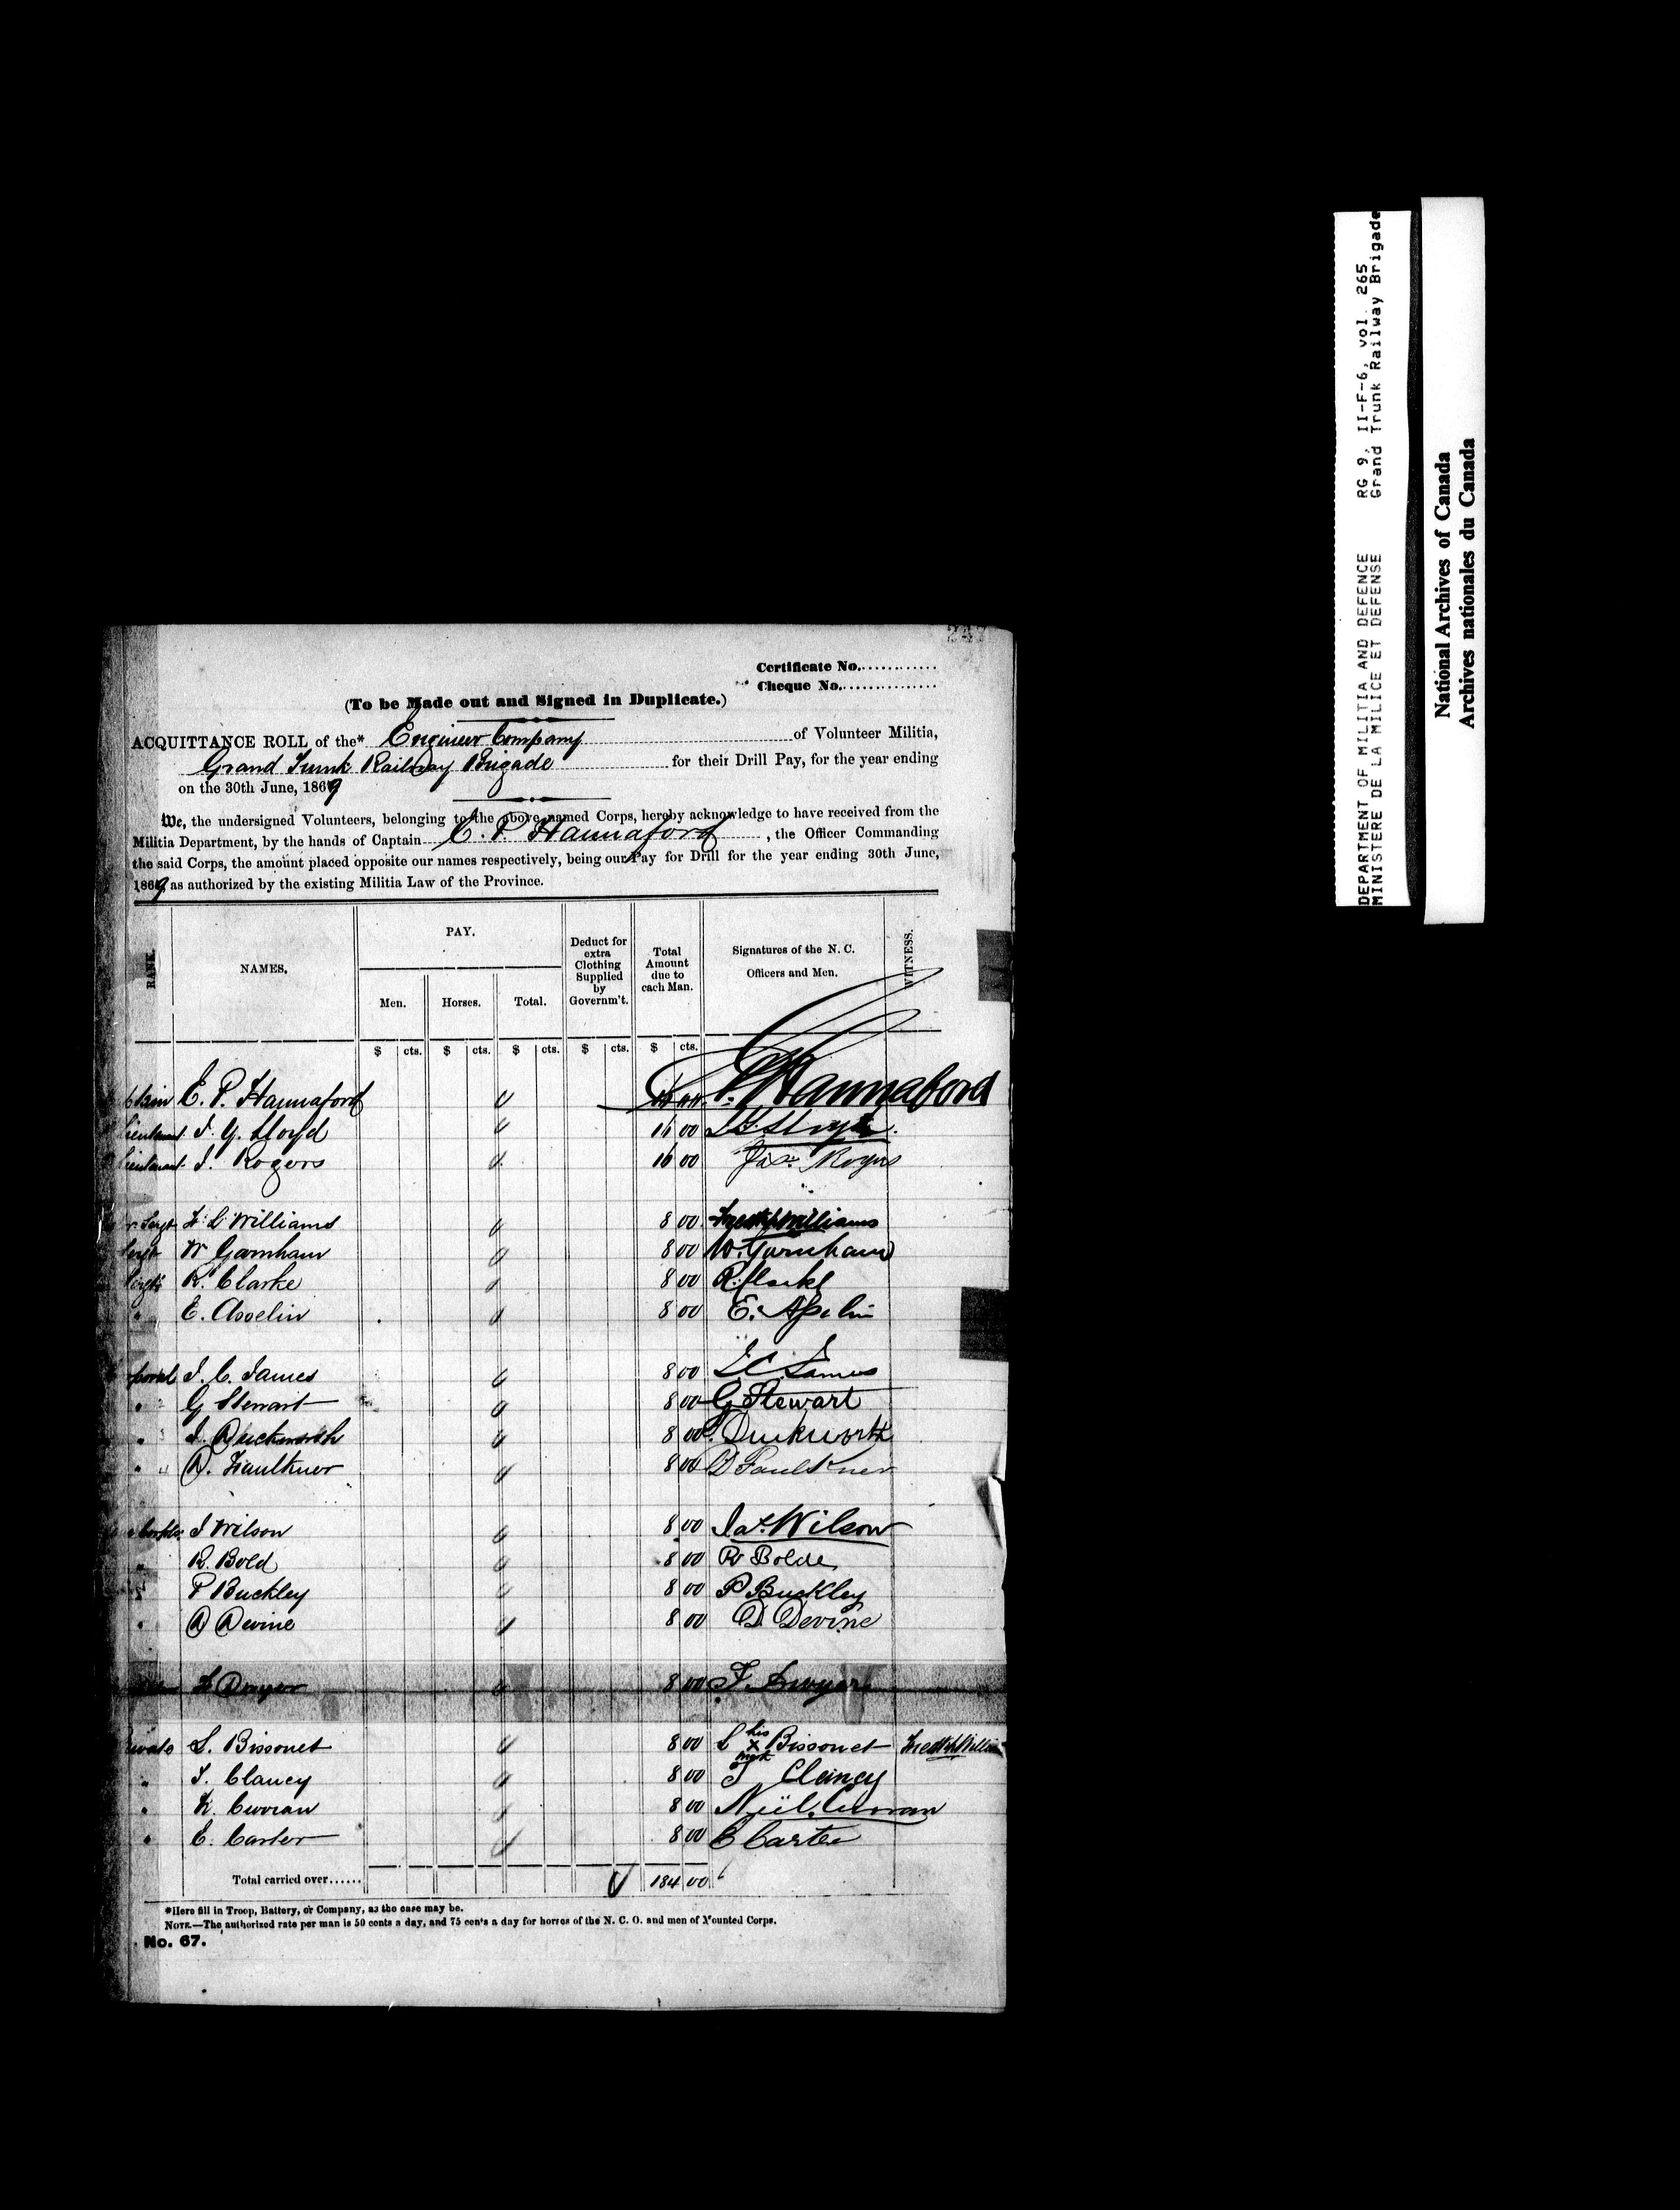 247
Certificate No.............
Cheque No................
(To be Made out and Signed in Duplicate.)
ACQUITTANCE ROLL of the* Engineer Company of Volunteer Militia,
Grand Trunk Railway Brigade for their Drill Pay, for the year ending
on the 30th June, 1869
We, the undersigned Volunteers, belonging to the above named Corps, hereby acknowledge to have received from the
Militia Department, by the hands of Captain E. P. Hannaford, the Officer Commanding
the said Corps, the amount placed opposite our names respectively, being our Pay for Drill for the year ending 30th June,
1869, as authorized by the existing Militia Law of the Province.
RANK. NAMES. PAY. Men. Horses. Total. Deduct for extra Clothing Supplied by Governm't. Total Amount due to each Man. Signatures of the N. C. Officers and Men. WITNESS.
$ cts. $ cts. $ cts. $ cts. $ cts.
E. P. Hannaford Hannaford
Lieutenant J. G. Lloyd 16 00
Lieutenant J. Rogers 16 00 Jas. Rogers
F. L. Williams 8 00 Williams
Sergt W Garnham 8 00 W. Garnham
R. Clarke 8 00
E. Asselin 8 00 E. Asselin
J. C. James 8 00 J C James
" G Stewart 8 00 G Stewart
" J. Duckworth 8 00 J. Duckworth
" D. Faulkner 8 00 D Faulkner
J Wilson 8 00 Jas. Wilson
" R. Bold 8 00 R Bolde
" P Buckley 8 00 P Buckley
" D Devine 8 00 D Devine
F Dwyer 8 00 F. Dwyer
Private L. Bissonet 8 00 L his X mark Bissonet
" T. Clancy 8 00 T Clancy
" N. Curran 8 00 Neil Curran
" E. Carter 8 00 E Carter
Total carried over...... 184 00
*Here fill in Troop, Battery, or Company, as the case may be.
NOTE.—The authorized rate per man is 50 cents a day, and 75 cents a day for horses of the N. C. O. and men of Mounted Corps.
No. 67.
DEPARTMENT OF MILITIA AND DEFENCE RG 9, II-F-6, vol. 265
MINISTERE DE LA MILICE ET DEFENSE Grand Trunk Railway Brigade
National Archives of Canada
Archives nationales du Canada